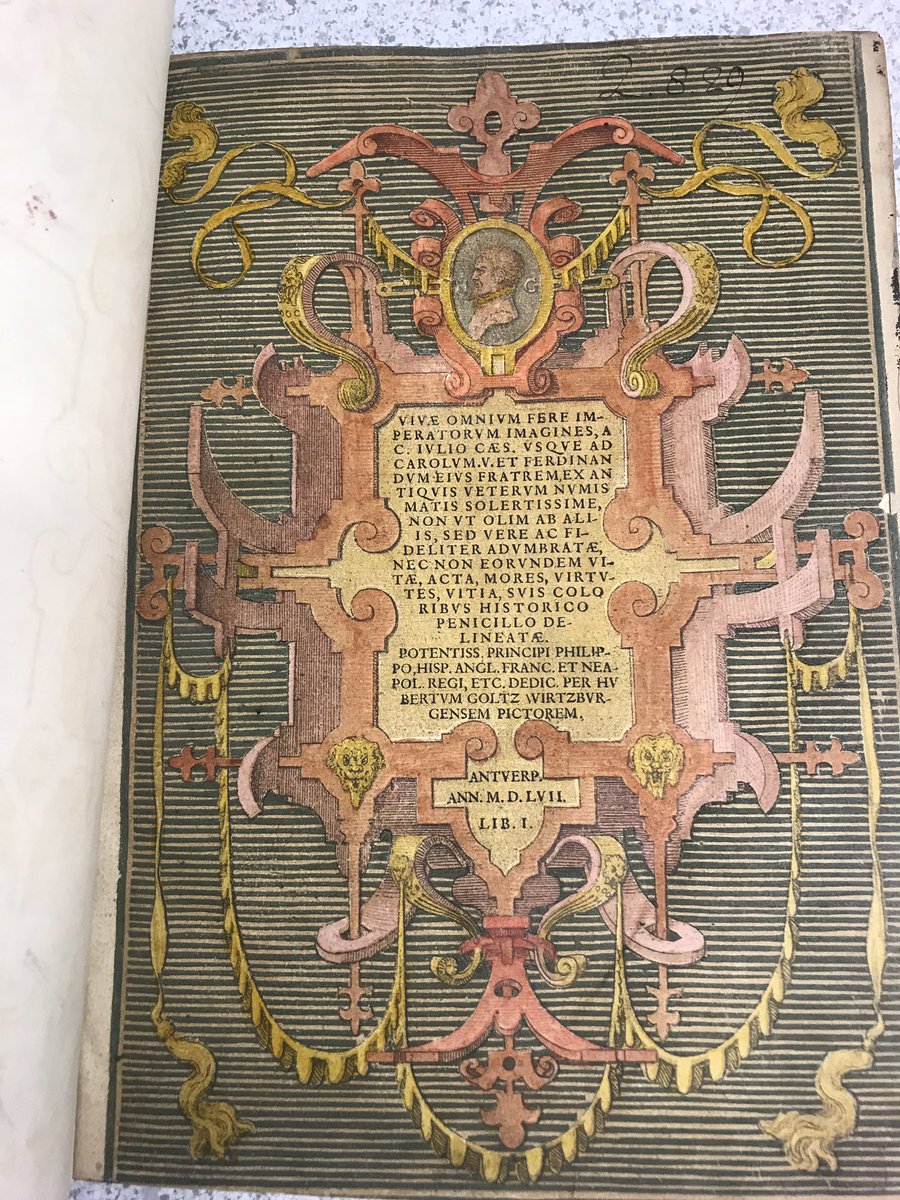 2.8.29
C
VIVÆ OMNIVM FERE IM-
PERATORVM IMAGINES, A
C. IVLIO CÆS. VSQVE AD
CAROLVM.V. ET FERDINAN
DVM EIVS FRATREM, EX AN
TIQVIS VETERVM NVMIS
MATIS SOLERTISSIME,
NON VT OLIM AB ALI-
IS, SED VERE AC FI-
DELITER ADVMBRATÆ,
NEC NON EORVNDEM VI-
TÆ, ACTA, MORES, VIRTV-
TES, VITIA, SVIS COLO
RIBVS HISTORICO
PENICILLO DE-
LINEATÆ.
POTENTISS. PRINCIPI PHILIP-
PO, HISP. ANGL. FRANC. ET NEA-
POL. REGI, ETC. DEDIC. PER HV
BERTVM GOLTZ WIRTZBVR-
GENSEM PICTOREM.
ANTVERP.
ANN. M. D. LVII.
LIB. I.